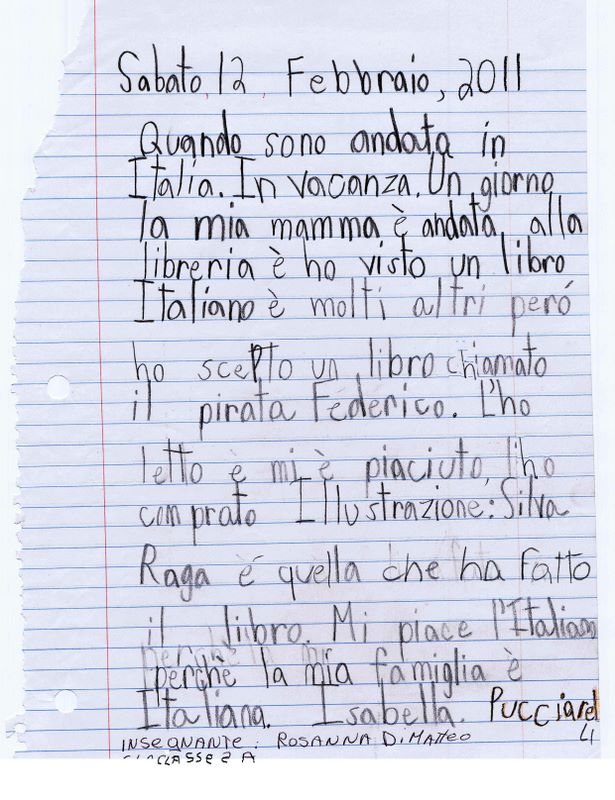 Sabato, 12 Febbraio, 2011
Quando sono andata in
Italia. In vacanza. Un giorno
la mia mamma è andata alla
libreria è ho visto un libro
Italiano è molti altri peró
ho scelto un libro chiamato
il pirata Federico. L'ho
letto e mi è piaciuto, l'ho
comprato Illustrazione: Silva
Raga é quella che ha fatto
il libro. Mi piace l'Italiano
perchè la mia famiglia è
Italiana. Isabella. Pucciarel
LI
INSEGNANTE: ROSANNA DiMATTEO
CLASSE 2 A